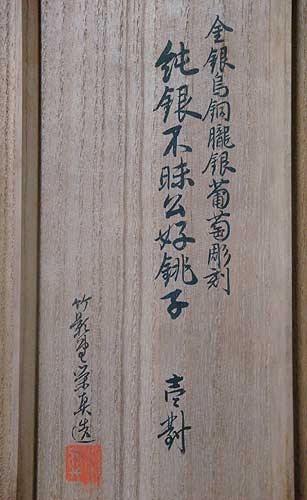 金銀烏銅朧銀葡萄彫刻
純銀不昧公好銚子 壹對
竹影堂榮真造